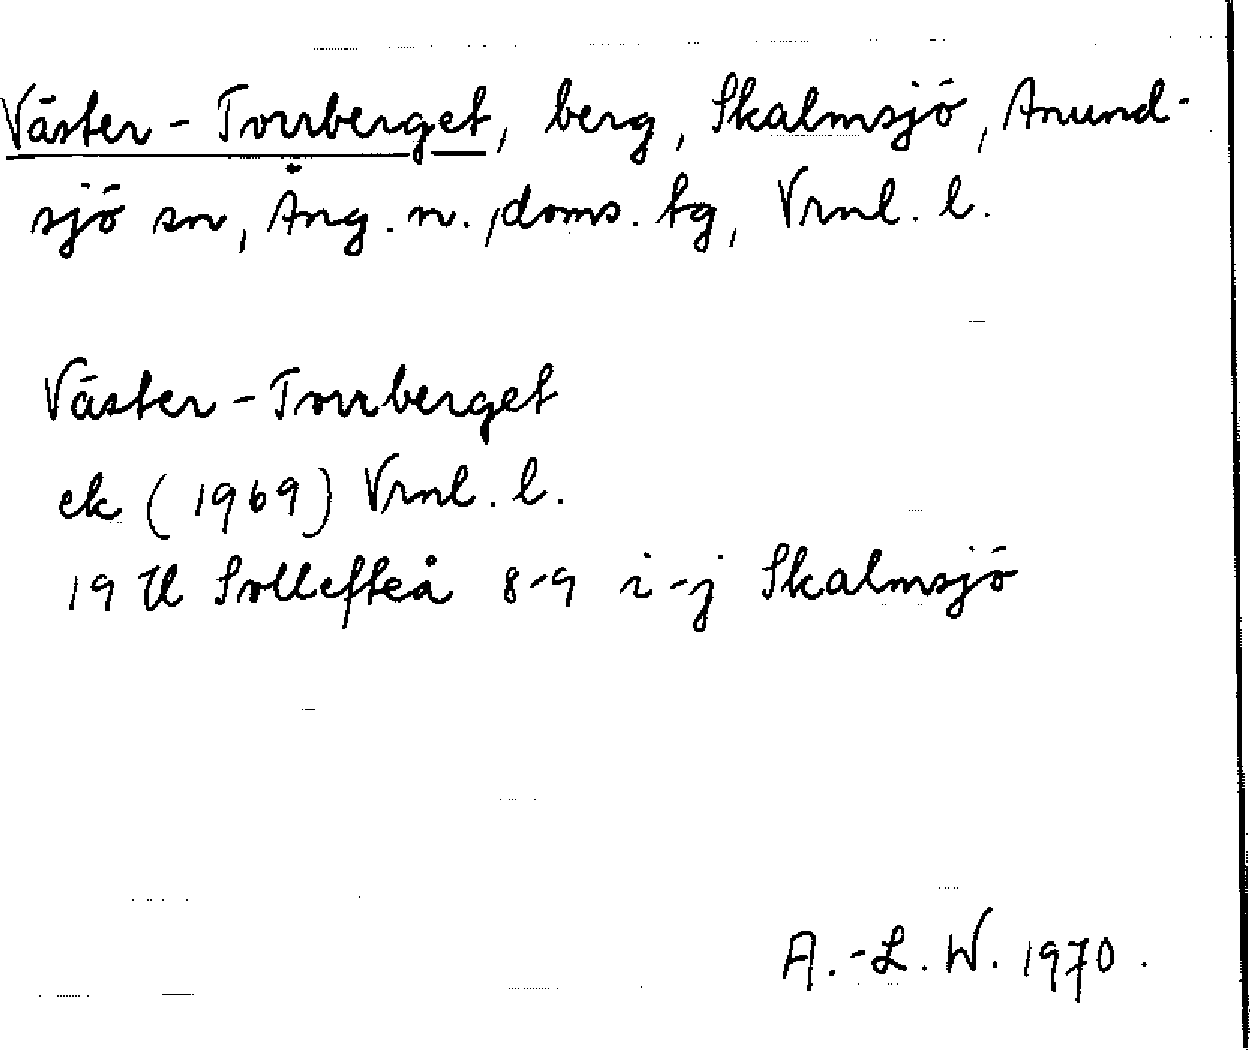 Väster-Torrberget, berg, Skalmsjö, Anund-
sjö sn, Ång. n. doms. tg, Vrnl. l.
Väster-Torrberget
ek (1969) Vrnl. l.
19 H Sollefteå 8-9 i-j Skalmsjö
A.-L. W. 1970.